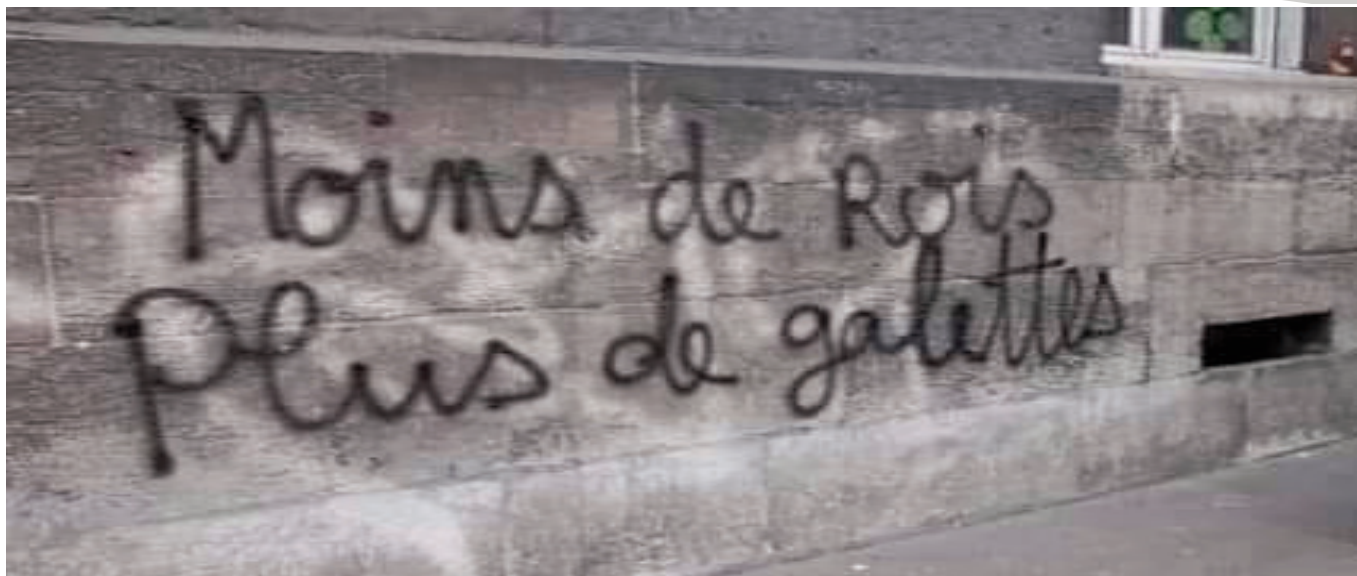 Moins de Rois
Plus de galettes